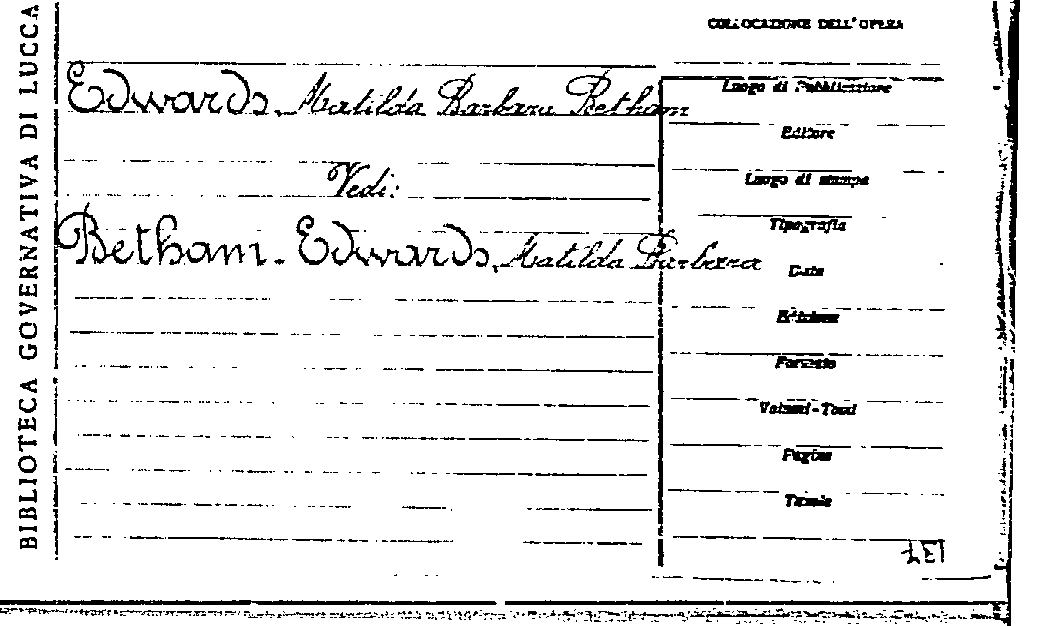 BIBLIOTECA GOVERNATIVA DI LUCCA
COLLOCAZIONE DELL'OPERA
Edwards, Matilda Barbara Betham
Vedi:
Betham-Edwards, Matilda Barbara
Luogo di Pubblicazione
Editore
Luogo di stampa
Tipografia
Data
Edizione
Formato
Volumi-Tomi
Pagine
Tavole